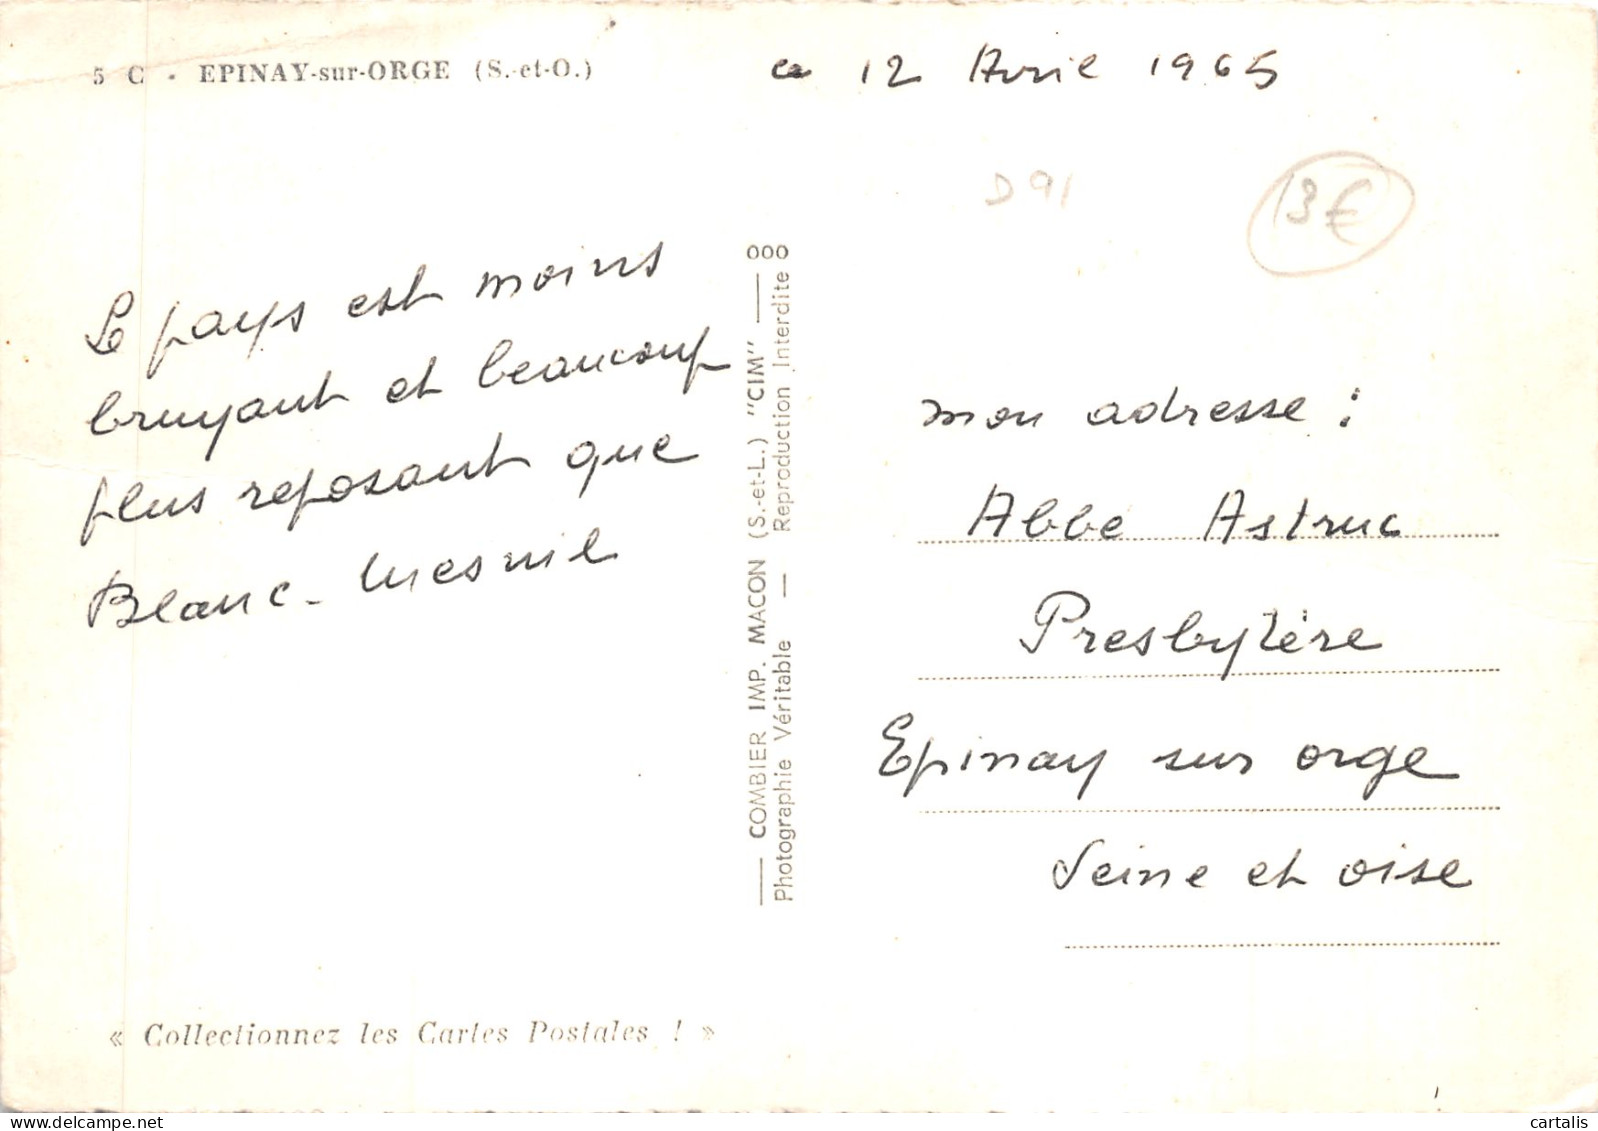 5 C - EPINAY-sur-ORGE (S.-et-O.)
ce 12 Avril 1965
D 91
3€
Le pays est moins
bruyant et beaucoup
plus reposant que
Blanc-Mesnil
COMBIER IMP. MACON (S.-et-L.) "CIM"
Photographie Véritable — Reproduction Interdite
mon adresse :
Abbe Astruc
Presbytère
Epinay sur orge
Seine et oise
« Collectionnez les Cartes Postales ! »
cartalis